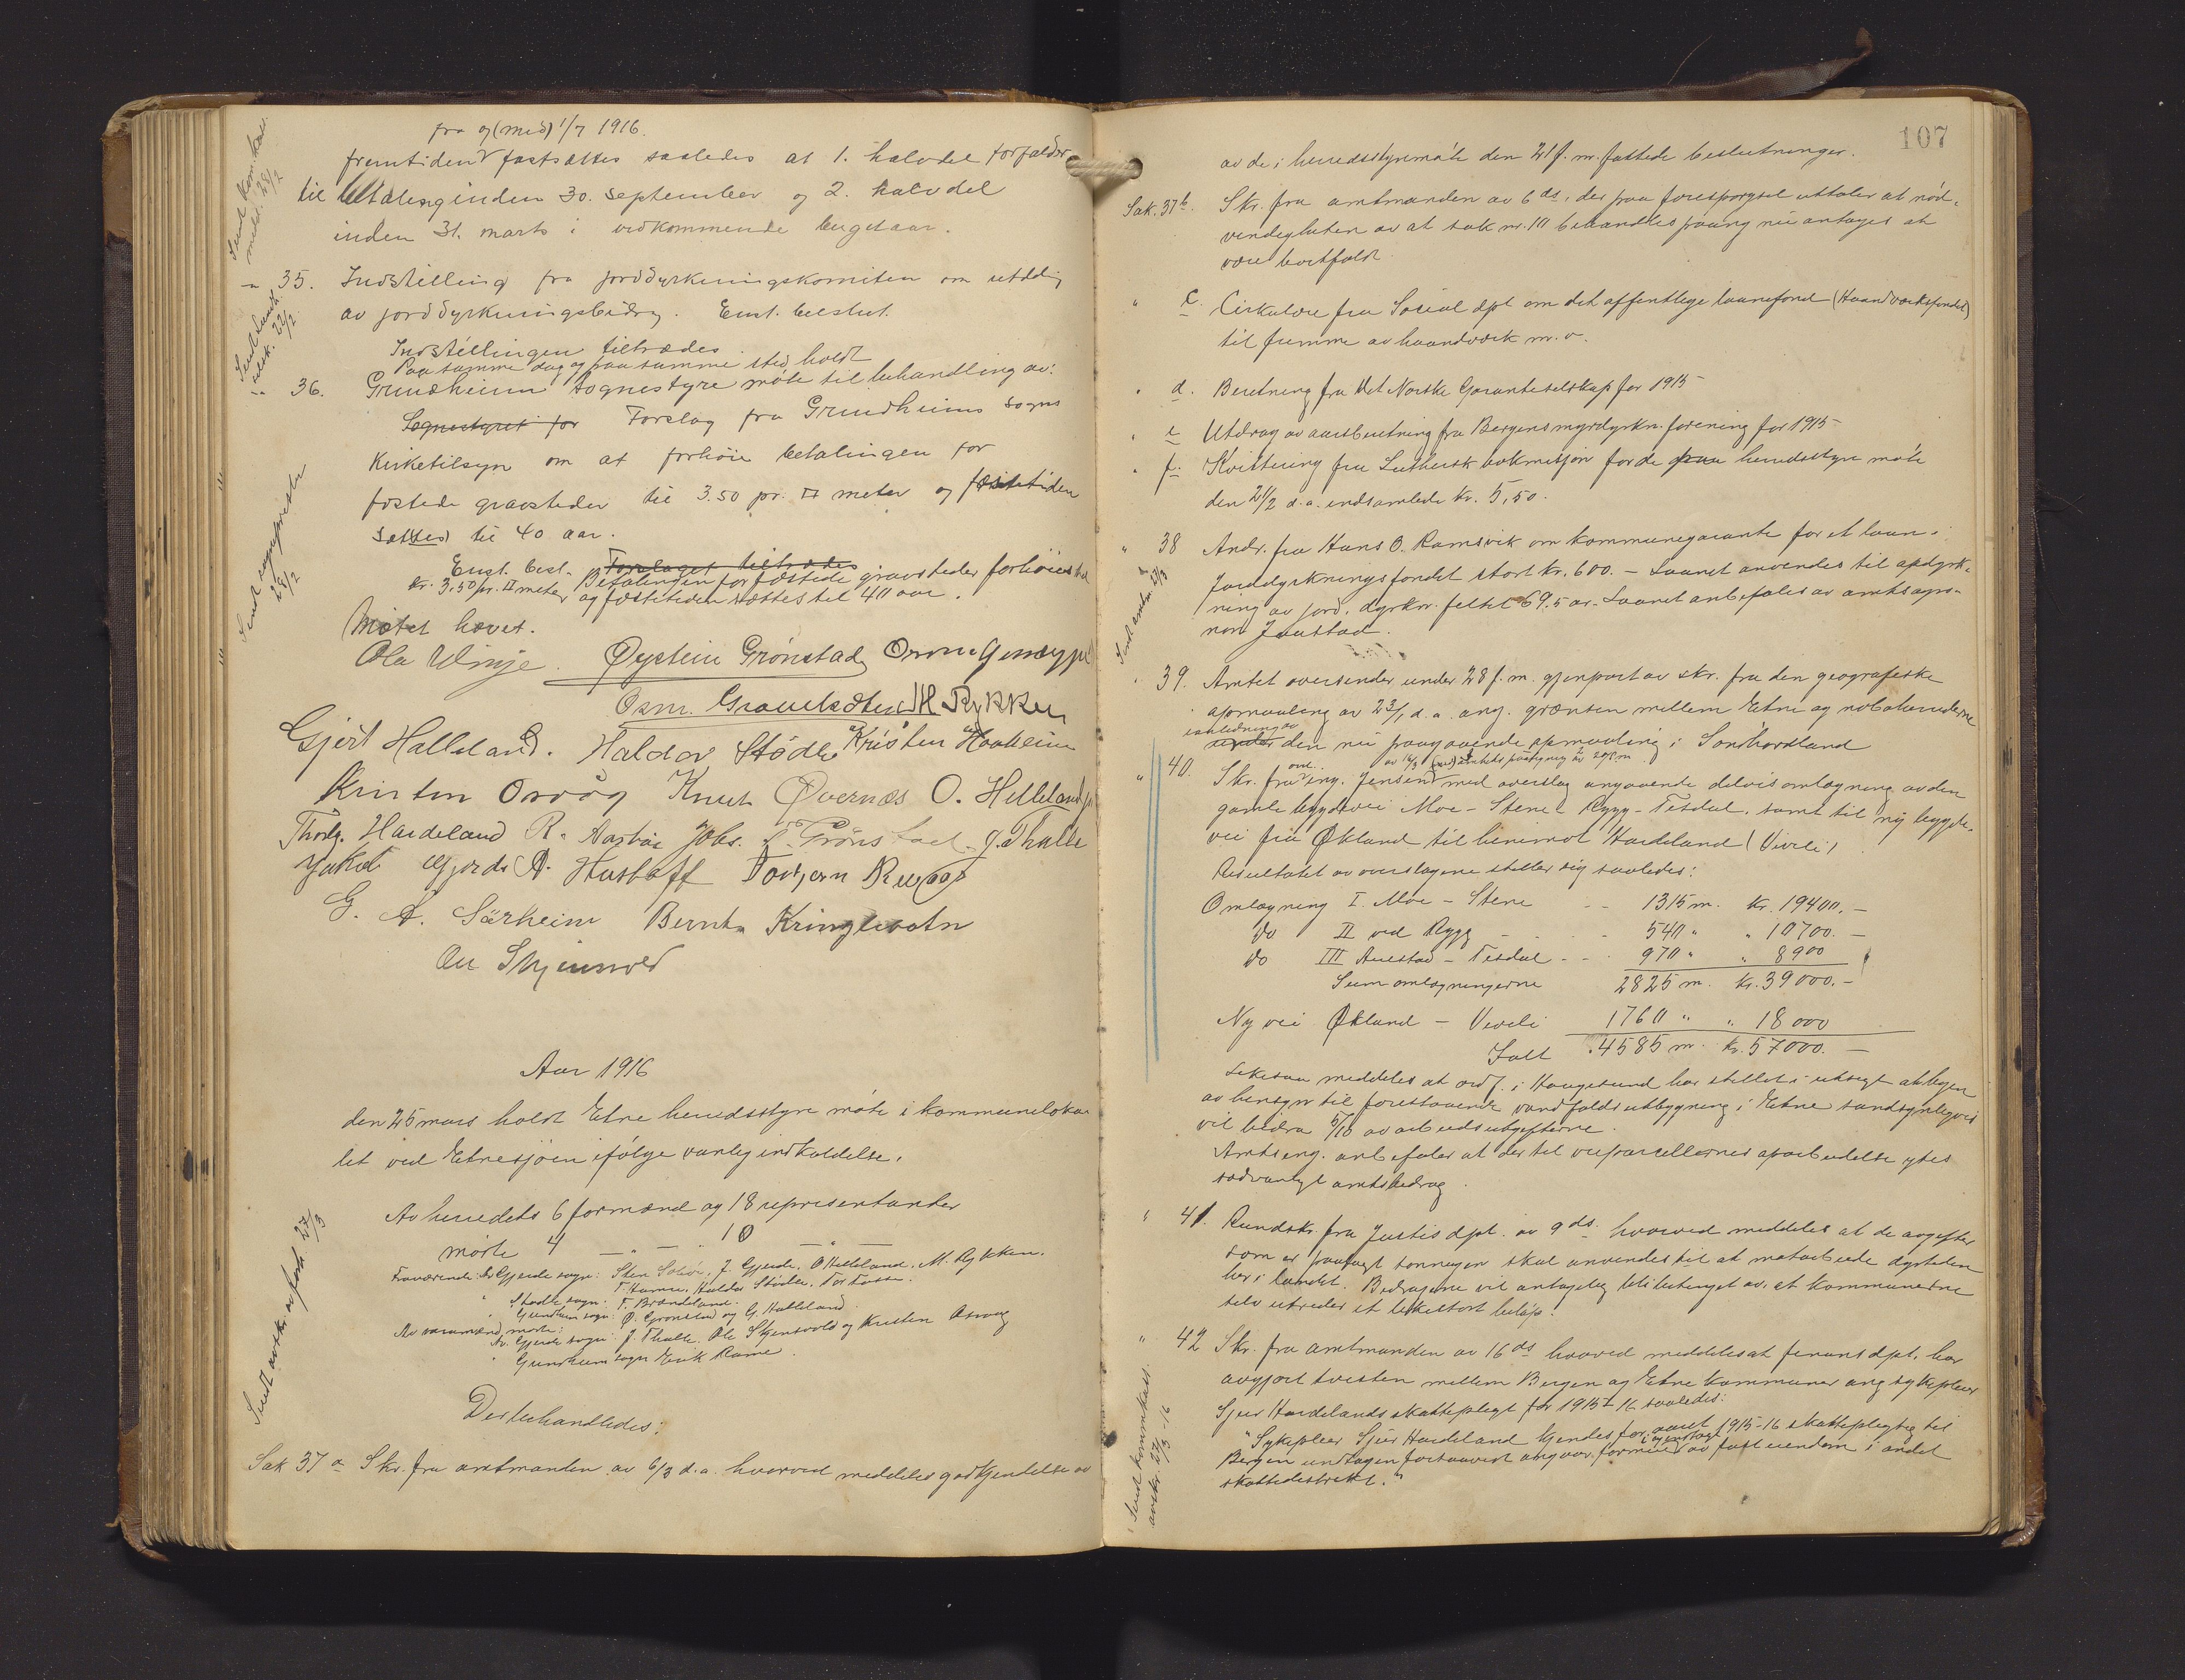 fra og (med) 1/7 1916.
fremtiden fastsættes saaledes at 1. halvdel forfalder
til betaling inden 30. september og 2. halvdel
inden 31. marts i vedkommende budgetaar.
Sendt kom.kas.
medd. 28/2
" 35. Indstilling fra jorddyrkningskomiteen om utdeling
av jorddyrkningsbidrag. Enst. beslut.
Indstillingen tiltrædes.
Sendt Landb.
selsk. 22/2
Paa samme dag og paa samme sted holdt
" 36. Grindheim sognestyre møte til behandling av:
Sognestyret for Forslag fra Grindheims sogns
kirketilsyn om at forhøie betalingen for
fæstede gravsteder til 3.50 pr. □ meter og fæstetiden
sættes til 40 aar.
Enst. besl. Forslaget tiltrædes
Betalingen for fæstede gravsteder forhøies til
kr. 3,50 pr. □ meter og fæstetiden sættes til 40 aar.
Sendt sogneprester
28/2
Møtet hævet.
Ola Vinje. Øystein Grønstad Orm
Osm. Grauelsæter M Rykken
Gjert Halleland. Haldor Stødle Kristen Haaheim
Kristen Osvåg Knut Øvernæs O. Helleland
Thorb. Hardeland R. Aasbøe Johs. T. Grønstad. J. Thalle
Jakob Gjerde A. Hustoft Torbjørn Rygg
G. A. Særheim Bernt Kringlevatn
Ole Skjensvold
Aar 1916
den 25 mars holdt Etne herredsstyre møte i kommuneloka-
let ved Etnesjøen ifølge vanlig indkaldelse.
Av herredets 6 formænd og 18 repræsentanter
møtte 4 — " — 10 — " —
Fraværende: Av Gjerde sogn: Sten Solvi, J. Gjerde, O Helleland, M. Rykken.
T. Hamre, Haldor Stødle, Tor Fosse.
" Stødle sogn: T. Brændeland.
" Grindheim sogn: Ø. Grønstad og G. Halleland.
Av varamænd møtte:
Av Gjerde sogn: J. Thalle, Ole Skjensvold og Kristen Osvaag
" Grindheim sogn Eirik Rame.
Sendt avskr. av forh. 27/3
Der behandledes:
Sak 37 a Skr. fra amtmanden av 6/3 d.a. hvorved meddeles godkjendelse av
107
av de i herredsstyremøte den 21 f.m. fattede beslutninger.
Sak. 37 b. Skr. fra amtmanden av 6 ds, der paa forespørgsel uttaler at nød-
vendigheten av at sak nr. 111 behandles paany nu antages at
være bortfaldt.
" c. Cirkulære fra Social dpt om det offentlige laanefond (Haandverksfondet)
til fremme av haandverk m.v.
" d. Beretning fra Det Norske Garantiselskap for 1915
" e Utdrag av aarsberetning fra Bergens myrdyrkn. forening for 1915
" f. Kvittering fra Luthersk bokmisjon for de paa herredsstyre møte
den 21/2 d.a. indsamlede kr. 5,50.
" 38 Andr. fra Hans O. Ramsvik om kommunegaranti for et laan i
Jorddyrkningsfondet stort kr. 600. – Laanet anvendes til opdyrk-
ning av jord. dyrkn. feltet 69.5 ar. Laanet anbefales av amtsagro-
nom Jaastad.
Sendt amtm. 27/3
" 39. Amtet oversender under 28 f.m. gjenpart av skr. fra den geografiske
opmaaling av 23/1 d.a. ang. grænsen mellem Etne og naboherrederne
i anledning av
under den nu paagaaende opmaaling i Sønhordland
" 40. Skr. fra ing. Jensen med overslag angaaende delvis omlægning av den
gamle bygdevei Moe – Stene – Rygg – Tesdal, samt til ny bygde-
vei fra Økland til henimot Hardeland (Viveli)
Resultatet av overslagene stiller sig saaledes:
Omlægning I. Moe – Stene - - 1315 m. kr. 19400.–
do II ved Rygg - - - - 540 " " 10700.–
do III Austad – Tesdal - - - 970 " " 8900
Sum omlægningerne 2825 m. kr. 39000.–
Ny vei Økland – Viveli 1760 " " 18000
Ialt 4585 m. kr. 57000.–
Likesaa meddeles at ordf. i Haugesund har stillet i utsigt at byen
av hensyn til forestaaende vandfaldsutbygning i Etne sandsynligvis
vil bidra 5/10 av arbeidsutgifterne.
Amtsing. anbefaler at der til veiparcellernes oparbeidelse ytes
sedvanlig amtsbidrag.
" 41. Rundskr. fra Justis dpt. av 9 ds. hvorved meddeles at de avgifter
som er paalagt sonnegen skal anvendes til at motarbeide dyrtiden
her i landet. Bidragene vil antagelig bli betinget av, at kommunerne
selv utreder et likestort beløp.
" 42 Skr. fra amtmanden av 16 ds hvorved meddeles at finansdpt. har
avgjort tvisten mellem Bergen og Etne kommuner ang. sykepleier
Sjur Hardelands skatteplegt for 1915–16 saaledes:
"Sykepleier Sjur Hardeland kjendes for aaret 1915–16 skattepligtig til
Bergen undtagen forsaavidt angaar formue i og indtægt av fast eiendom i andet
skattedistrikt."
Sendt kommkass.
avskr. 27/3-16